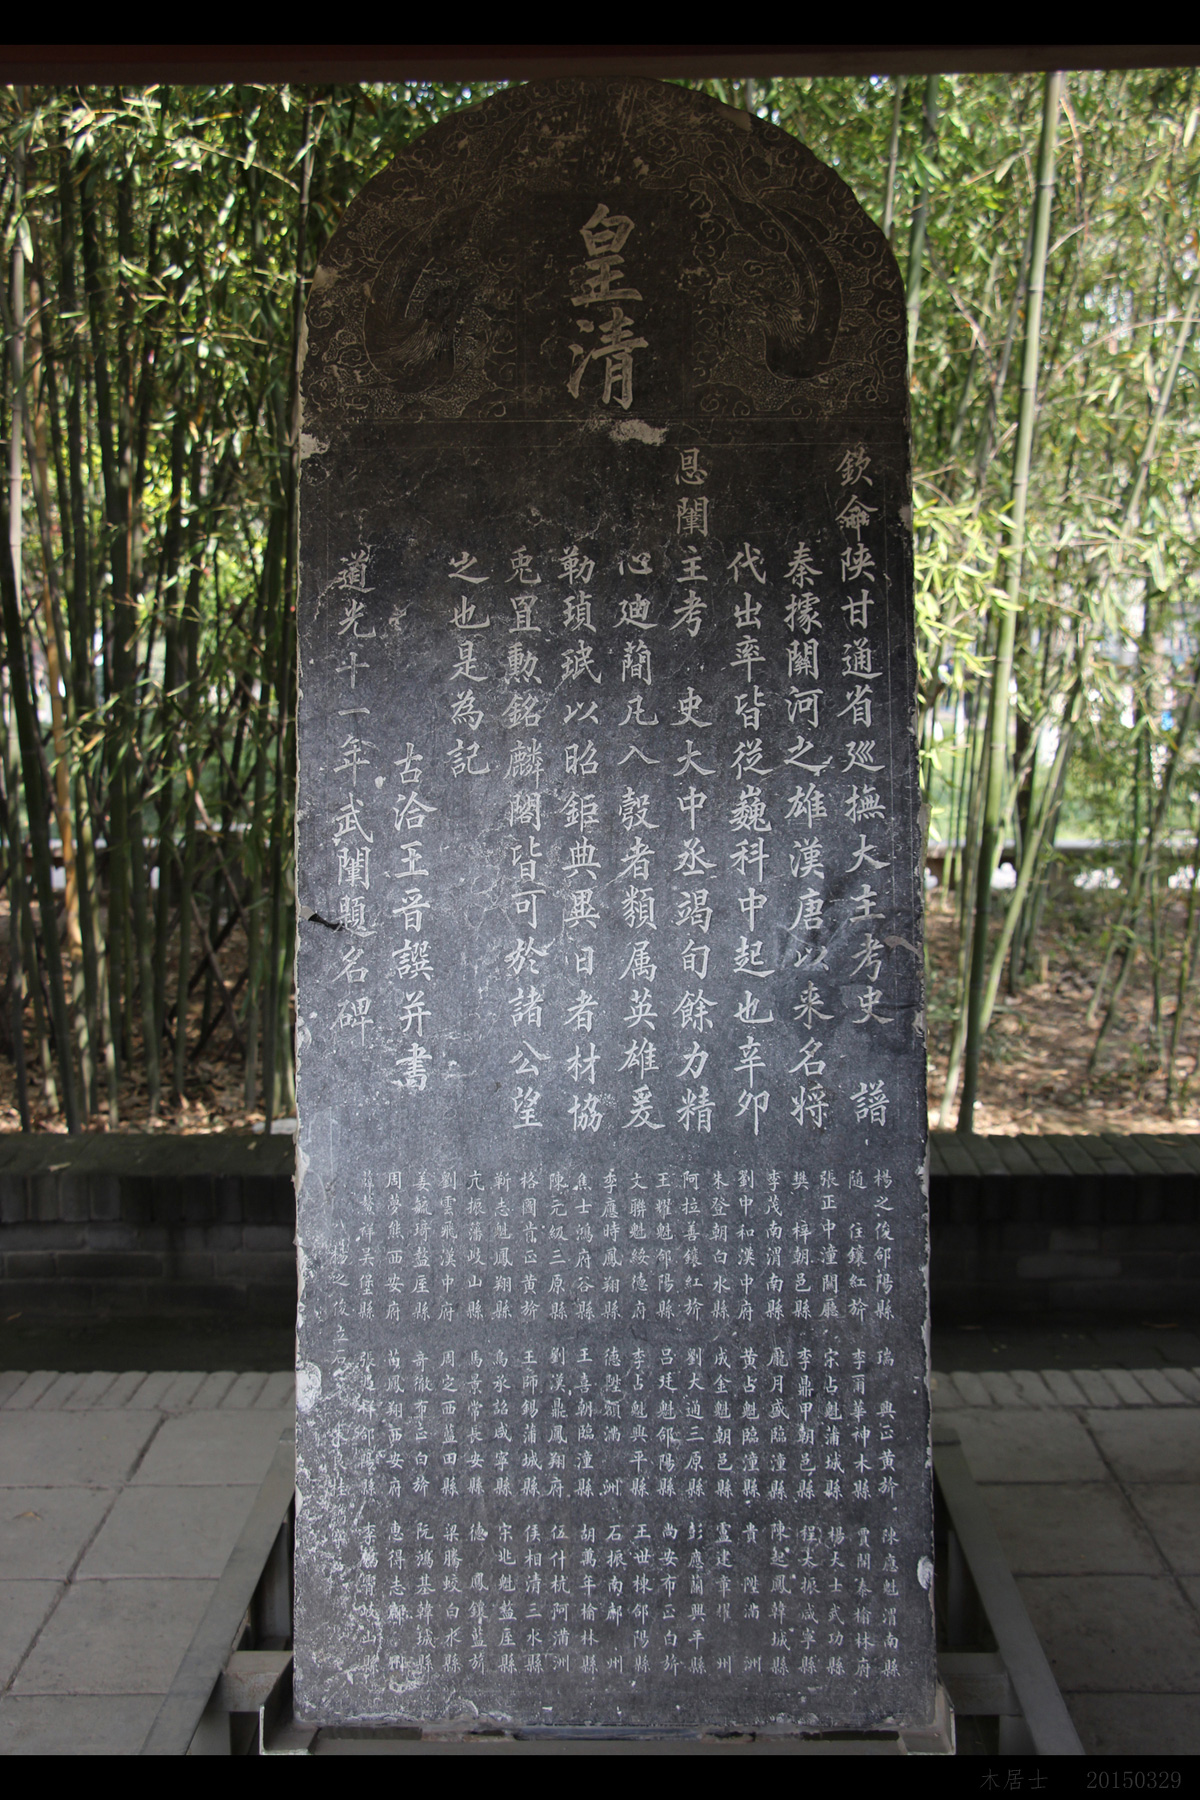 皇清
欽命陝甘通省巡撫大主考史 譜
秦據關河之雄漢唐以来名将
代出率皆從巍科中起也辛夘
恩闈主考 史大中丞竭旬餘力精
心廸蕳凡入彀者類属英雄爰
勒瑱珉以昭鉅典異日者材協
兎罝勲銘麟閣皆可於諸公望
之也是為記
古洽王晉譔并書
道光十一年武闈題名碑
楊之俊郃陽縣
随 住鑲紅旂
張正中潼關廳
樊 梓朝邑縣
李茂南渭南縣
劉中和漢中府
朱登朝白水縣
阿拉善鑲紅旂
王耀魁郃陽縣
文聯魁綏德府
李應時鳳翔縣
焦士鴻府谷縣
陳元級三原縣
格圖肯正黄旂
靳志魁鳳翔縣
亢振藩岐山縣
劉雲飛漢中府
姜毓琦盩厔縣
周夢熊西安府
祥吴堡縣
瑞 興正黄旂
李爾華神木縣
宋占魁蒲城縣
李鼎甲朝邑縣
龐月盛臨潼縣
黄占魁臨潼縣
成金魁朝邑縣
劉大通三原縣
吕廷魁郃陽縣
李占魁興平縣
德陞額滿 洲
王喜朝臨潼縣
劉漢鼎鳳翔府
王師錫蒲城縣
烏承詔咸寧縣
馬景常長安縣
周之西藍田縣
奇徹布正白旂
苗鳳翔西安府
郃陽縣
陳應魁渭南縣
賈開泰榆林府
楊天士武功縣
程大振咸寧縣
陳起鳳韓城縣
貴 陞滿 洲
盧建章耀 州
彭應蘭興平縣
尚安布正白旂
王世棟郃陽縣
石振南鄜 州
胡萬年榆林縣
伍什杭阿滿洲
侯相清三水縣
宋兆魁盩厔縣
德 鳳鑲藍旂
梁騰蛟白水縣
阮鴻基韓城縣
惠得志鄜 州
李 岐山縣
楊之俊立石
木居士 20150329